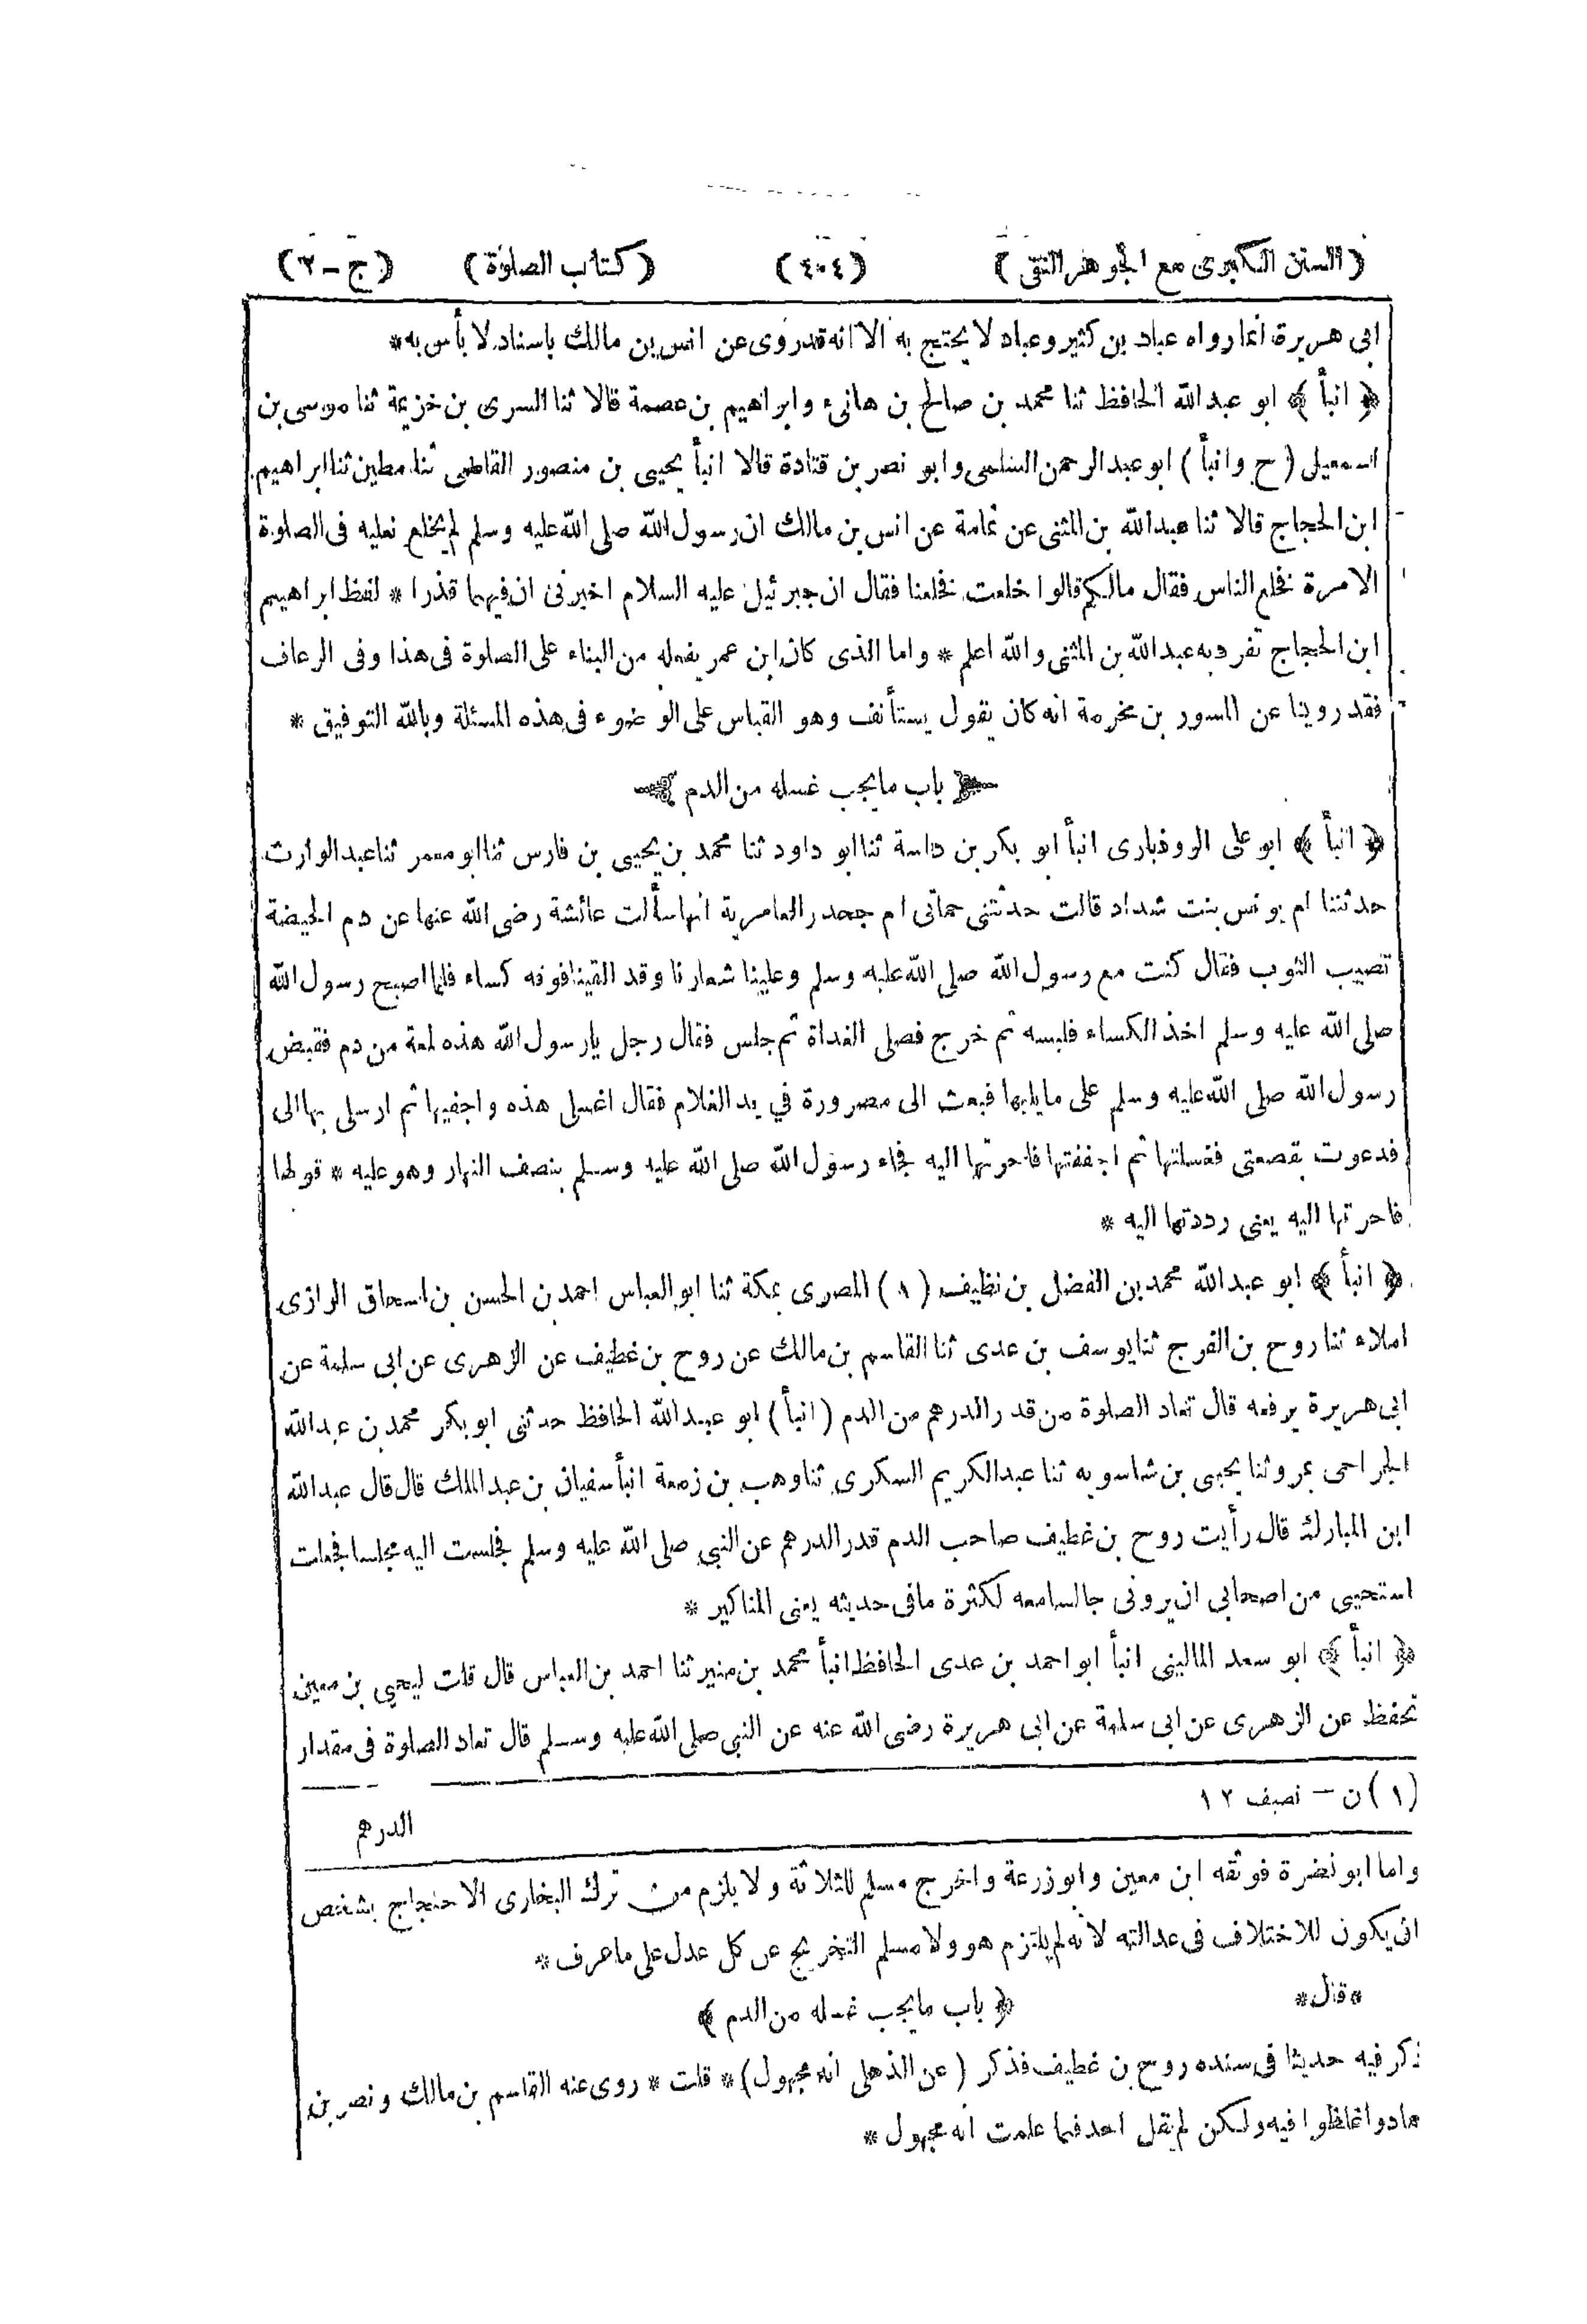 (السنن الكبرى مع الجوهر النقى) (٤٠٤) (كتاب الصلوة) (ج-٢)
ابى هريرة انما رواه عباد بن كثير وعباد لا يحتج به الا انه قدروى عن انس بن مالك باسناد لا بأس به*
﴿ انبأ ﴾ ابو عبدالله الحافظ ثنا محمد بن صالح بن هانىء وابراهيم بن عصمة قالا ثنا السرى بن خزيمة ثنا موسى بن
اسمعيل (ح وانبأ) ابو عبدالرحمن السلمى وابو نصر بن قتادة قالا انبأ يحيى بن منصور القاضى ثنا مطين ثنا ابراهيم
ابن الحجاج قالا ثنا عبدالله بن المثنى عن ثمامة عن انس بن مالك ان رسول الله صلى الله عليه وسلم لم يخلع نعليه فى الصلوة
الا مرة فخلع الناس فقال مالكم قالوا خلعت فخلعنا فقال ان جبرئيل عليه السلام اخبرنى ان فيهما قذرا * لفظ ابراهيم
ابن الحجاج تفرد به عبدالله بن المثنى والله اعلم * واما الذى كان ابن عمر يفعله من البناء على الصلوة فى هذا وفى الرعاف
فقد روينا عن المسور بن مخرمة انه كان يقول يستأنف وهو القياس على الوضوء فى هذه المسئلة وبالله التوفيق *
باب مايجب غسله من الدم
﴿ انبأ ﴾ ابو على الروذبارى انبأ ابو بكر بن داسة ثنا ابو داود ثنا محمد بن يحيى بن فارس ثنا ابو معمر ثنا عبدالوارث
حدثتنا ام يونس بنت شداد قالت حدثتنى حماتى ام جحدر العامرية انها سألت عائشة رضى الله عنها عن دم الحيضة
تصيب الثوب فقال كنت مع رسول الله صلى الله عليه وسلم وعلينا شعارنا وقد القينا فوقه كساء فلما اصبح رسول الله
صلى الله عليه وسلم اخذ الكساء فلبسه ثم خرج فصلى الغداة ثم جلس فقال رجل يارسول الله هذه لمعة من دم فقبض
رسول الله صلى الله عليه وسلم على مايليها فبعث الى مصرورة في يد الغلام فقال اغسلى هذه واجفيها ثم ارسلى بها الى
فدعوت بقصعتى فغسلتها ثم اجففتها فاحرتها اليه فجاء رسول الله صلى الله عليه وسلم بنصف النهار وهو عليه * قولها
فاحرتها اليه يعنى رددتها اليه *
﴿ انبأ ﴾ ابو عبدالله محمد بن الفضل بن نظيف (١) المصرى بمكة ثنا ابو العباس احمد بن الحسن بن اسحاق الرازى
املاء ثنا روح بن الفرج ثنا يوسف بن عدى ثنا القاسم بن مالك عن روح بن غطيف عن الزهرى عن ابى سلمة عن
ابى هريرة يرفعه قال تعاد الصلوة من قدر الدرهم من الدم (انبأ) ابو عبدالله الحافظ حدثنى ابو بكر محمد بن عبدالله
الجراحى بمرو ثنا يحيى بن شاسويه ثنا عبدالكريم السكرى ثنا وهب بن زمعة انبأ سفيان بن عبدالملك قال قال عبدالله
ابن المبارك قال رأيت روح بن غطيف صاحب الدم قدر الدرهم عن النبى صلى الله عليه وسلم فجلست اليه مجلسا فجعلت
استحيى من اصحابى ان يرونى جالسا معه لكثرة مافى حديثه يعنى المناكير *
﴿ انبأ ﴾ ابو سعد المالينى انبأ ابو احمد بن عدى الحافظ انبأ محمد بن منير ثنا احمد بن العباس قال قلت ليحيى بن معين
تحفظ عن الزهرى عن ابى سلمة عن ابى هريرة رضى الله عنه عن النبى صلى الله عليه وسلم قال تعاد الصلوة فى مقدار
(١) ن - نصيف ١٢
الدرهم
واما ابو نضرة فوثقه ابن معين وابو زرعة واخرج مسلم للثلاثة ولا يلزم من ترك البخارى الاحتجاج بشخص
ان يكون للاختلاف فى عدالته لانه لم يلتزم هو ولا مسلم التخريج عن كل عدل على ماعرف *
*قال*
﴿ باب مايجب غسله من الدم ﴾
ذكر فيه حديثا فى سنده روح بن غطيف فذكر (عن الذهلى انه مجهول) * قلت * روى عنه القاسم بن مالك ونصر بن
حماد واغلظوا فيه ولكن لم يقل احد فيما علمت انه مجهول *